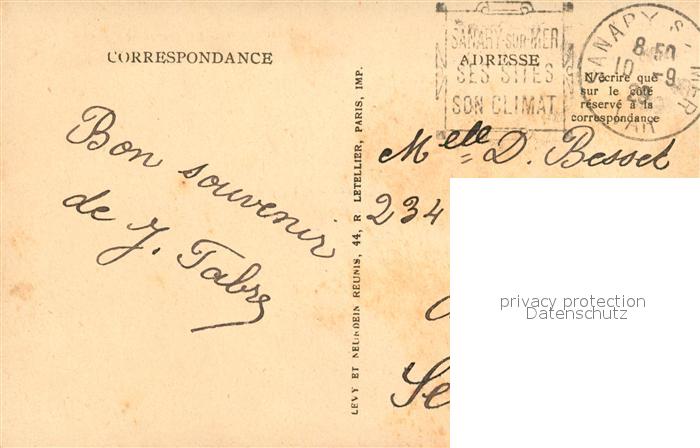 CORRESPONDANCE
Bon souvenir
de J. Fabre
LEVY ET NEURDEIN REUNIS, 44, R LETELLIER, PARIS, IMP.
SANARY-SUR-MER
SES SITES
SON CLIMAT
ADRESSE
SANARY S MER
8-50
10 -9
VAR
N'écrire que
sur le côté
réservé à la
correspondance
Melle D. Besset
234
privacy protection
Datenschutz